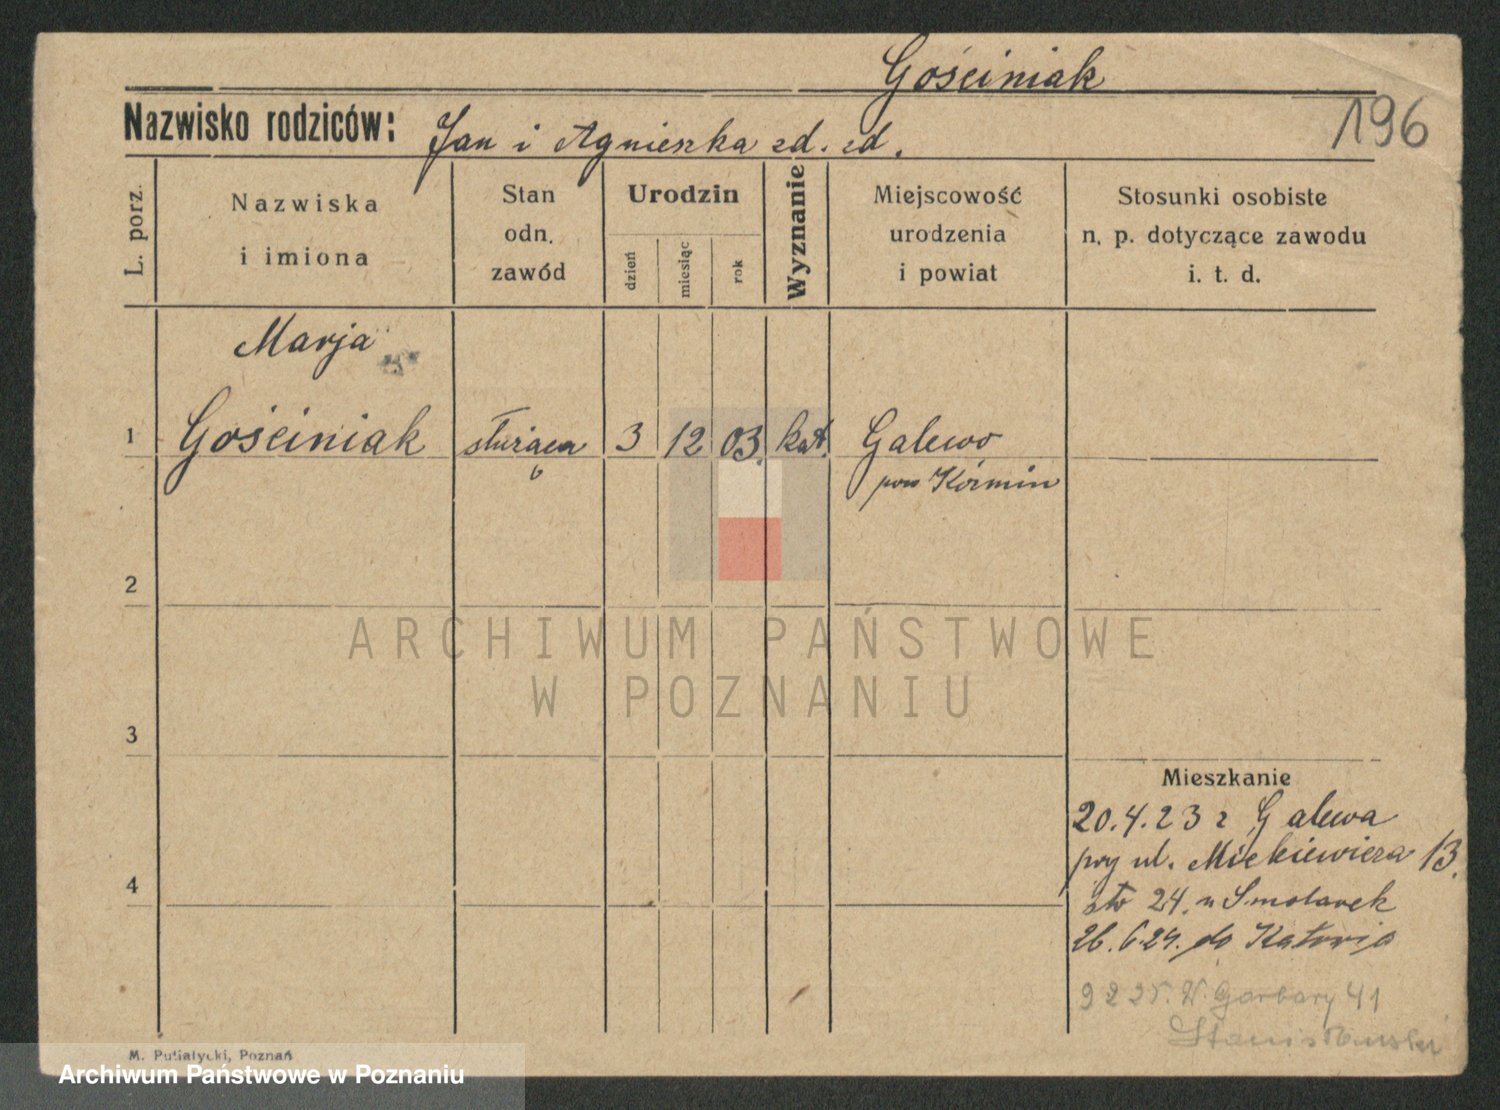 Gościniak
196
Nazwisko rodziców: Jan i Agnieszka zd. zd.
L. porz.
Nazwiska
i imiona
Stan
odn.
zawód
Urodzin
dzień
miesiąc
rok
Wyznanie
Miejscowość
urodzenia
i powiat
Stosunki osobiste
n. p. dotyczące zawodu
i. t. d.
Marja
1 Gościniak służąca 3 12 03. kat. Galewo
pow Koźmin
2
ARCHIWUM PAŃSTWOWE
W POZNANIU
3
Mieszkanie
20.4.23 z Galewa
przy ul. Mickiewicza 13.
4
24. u Smolarek
26.6.24. do
9 2 25. W. Garbary 41
M. Putiatycki, Poznań
Archiwum Państwowe w Poznaniu